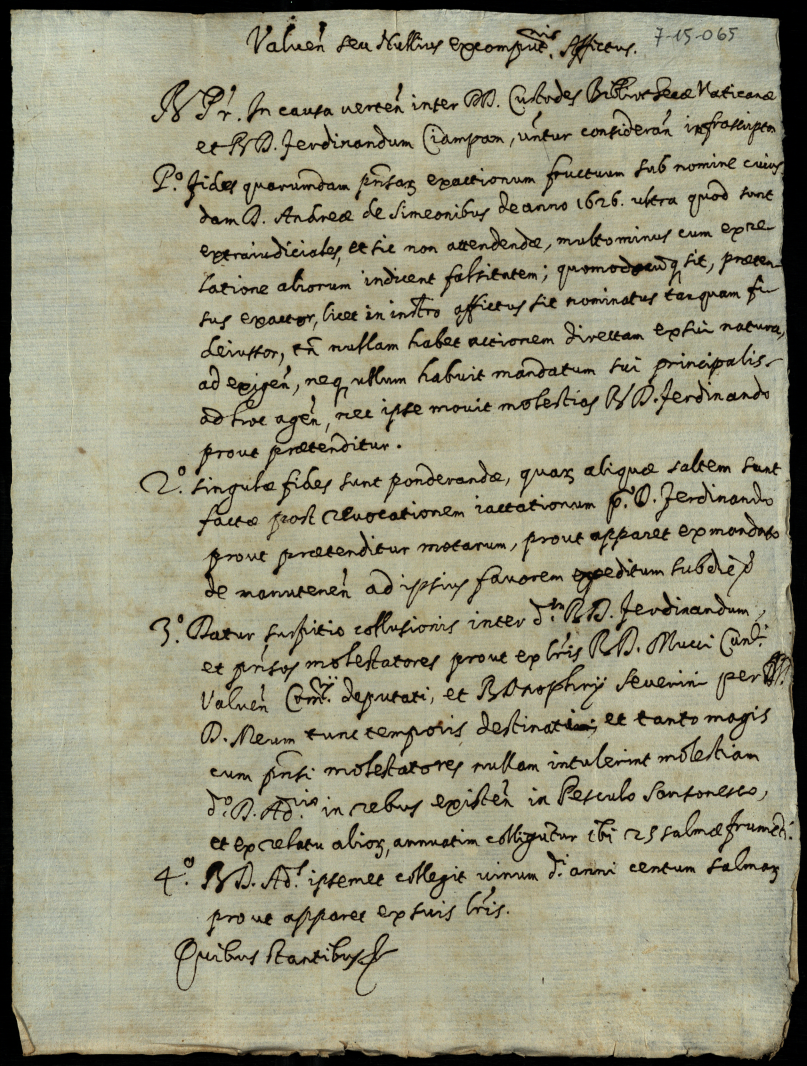 7-15-065
Valueñ seu Nullius excomput.nis Affictus.
R P̃r. In causa verteñ inter DD. Custodes Bibliothecæ Vaticanæ
et R D. Ferdinandum Ciampan, ũntur consideran̄ infrascripta
P.o Fides quarumdam p̃nsaꝝ exactionum fructuum sub nomine cuius
dam D. Andreæ de Simeonibus de anno 1626. ultra quod sunt
extraiudiciales, et sic non attendendæ, multominus cum ex re
latione aliorum indicent falsitatem; quomodocunq sit, præten
sus exactor, licet in inst̃ro affictus sit nominatus tanquam fi
deiussor, tñ nullam habet actionem directam ex sui natura,
ad exigeñ, neq ullum habuit mandatum sui principalis
ad hoc ageñ, nec ipse movit molestias R D. Ferdinando
prout prætenditur.
2.o Singulæ fides sunt ponderandæ, quaꝝ aliquæ saltem sunt
factæ post revocationem iactationum p. D. Ferdinando
prout prætenditur motarum, prout apparet ex mandato
de manuteneñ ad ipsius favorem expeditum sub die
3.o Datur suspitio collusionis inter d.m R D. Ferdinandum,
et p̃nsos molestatores prout ex l̃ris R D. Mucci
Valueñ Com.rij deputati, et Severini per
D. Meum tunc temporis destinati, et tanto magis
cum p̃nsi molestatores nullam intulerint molestiam
d.o D. Ad.rio in rebus existeñ in Pesculo Sansonesco,
et ex relatu alioꝝ, annuatim colligũtur ibi 25 salmæ frumẽti.
4.o R D. Ad.s ipsemet collegit vinum d.i anni centum salmaꝝ
prout apparet ex suis l̃ris.
Quibus stantibus